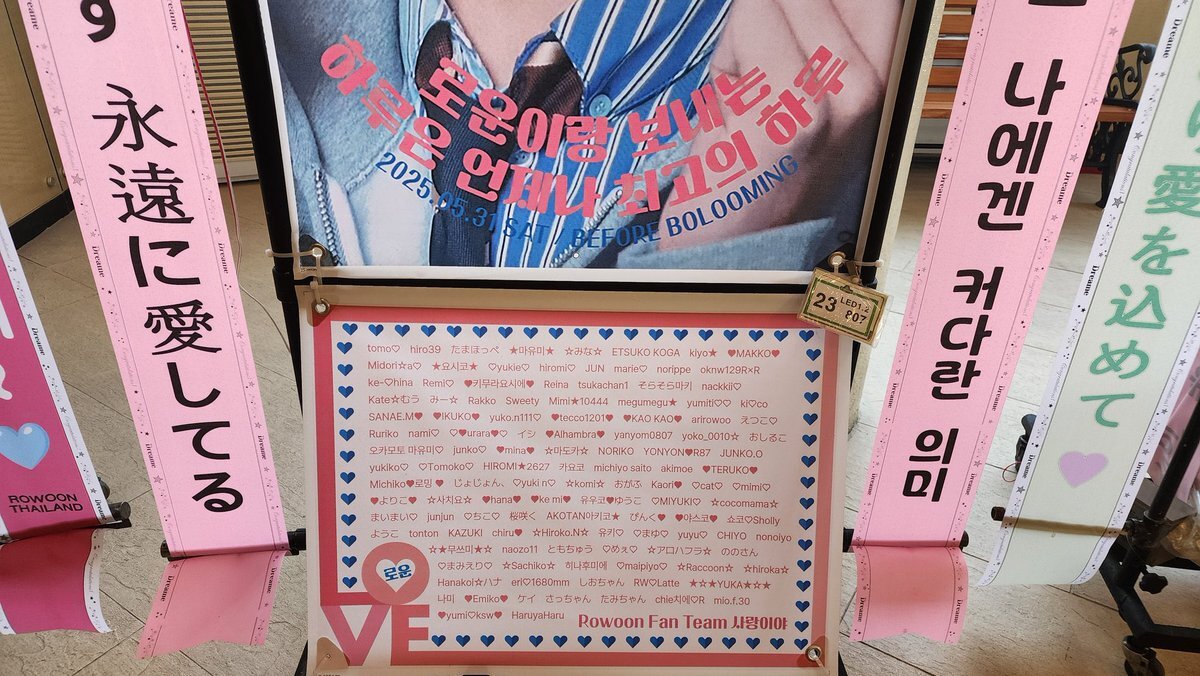 永遠に愛してる
ROWOON
THAILAND
로운이랑 보내는
하루은 언제나 최고의 하루
2025.05.31 SAT / BEFORE BOLOOMING
23 LED1,2
807
나에겐 커다란 의미
愛を込めて
tomo♡ hiro39 たまほっぺ ★마유미★ ☆みな☆ ETSUKO KOGA kiyo★ ♥MAKKO♥
Midori☆a♡ ★요시코★ ♡yukie♡ hiromi♡ JUN marie♡ norippe oknw129R×R
ke-♡hina Remi♡ ♥키무라요시에♥ Reina tsukachan1 そらそらマキ nackkii♡
Kate☆むう みー☆ Rakko Sweety Mimi★10444 megumegu★ yumiti♡♡ ki♡co
SANAE.M♥ ♥IKUKO♥ yuko.n111♡ ♥tecco1201♥ ♥KAO KAO♥ arirowoo えつこ♡
Ruriko nami♡ ♡♥urara♥♡ イシ ♥Alhambra♥ yanyom0807 yoko_0010☆ おしるこ
오카모토 마유미♡ junko♡ ♥mina♥ ☆마도카☆ NORIKO YONYON♥R87 JUNKO.O
yukiko♡ ♡Tomoko♡ HIROMI★2627 카요코 michiyo saito akimoe ♥TERUKO♥
Michiko♥로밍♥ じょじょん、 ♡yuki n♡ ☆komi☆ おがふ Kaori♥ ♡cat♡ ♡mimi♡
♥よりこ♥ ☆사치요☆ ♥hana♥ ♥ke mi♥ 유우코♥ゆうこ ♡MIYUKI♡ ☆cocomama☆
まいまい♡ junjun ♡ちこ♡ 桜咲く AKOTAN아키코★ ぴんく♥ ♥야스코♥ 쇼코♡Sholly
ようこ tonton KAZUKI chiru♥ ☆Hiroko.N☆ 유키♡ ♡まゆ♡ yuyu♡ CHIYO nonoiyo
☆★무쓰미★☆ naozo11 ともちゅう ♡めぇ♡ ☆アロハフラ☆ ののさん
♡まみえり♡ ☆Sachiko☆ 히나후미에 ♡maipiyo♡ ☆Raccoon☆ ☆hiroka☆
Hanakoi☆ハナ eri♡1680mm しおちゃん RW♡Latte ★★★YUKA★☆★
나미 ♥Emiko♥ ケイ さっちゃん たみちゃん chie치에♡R mio.f.30
♥yumi♡ksw♥ HaruyaHaru
Rowoon Fan Team 사랑이야
로운
LOVE